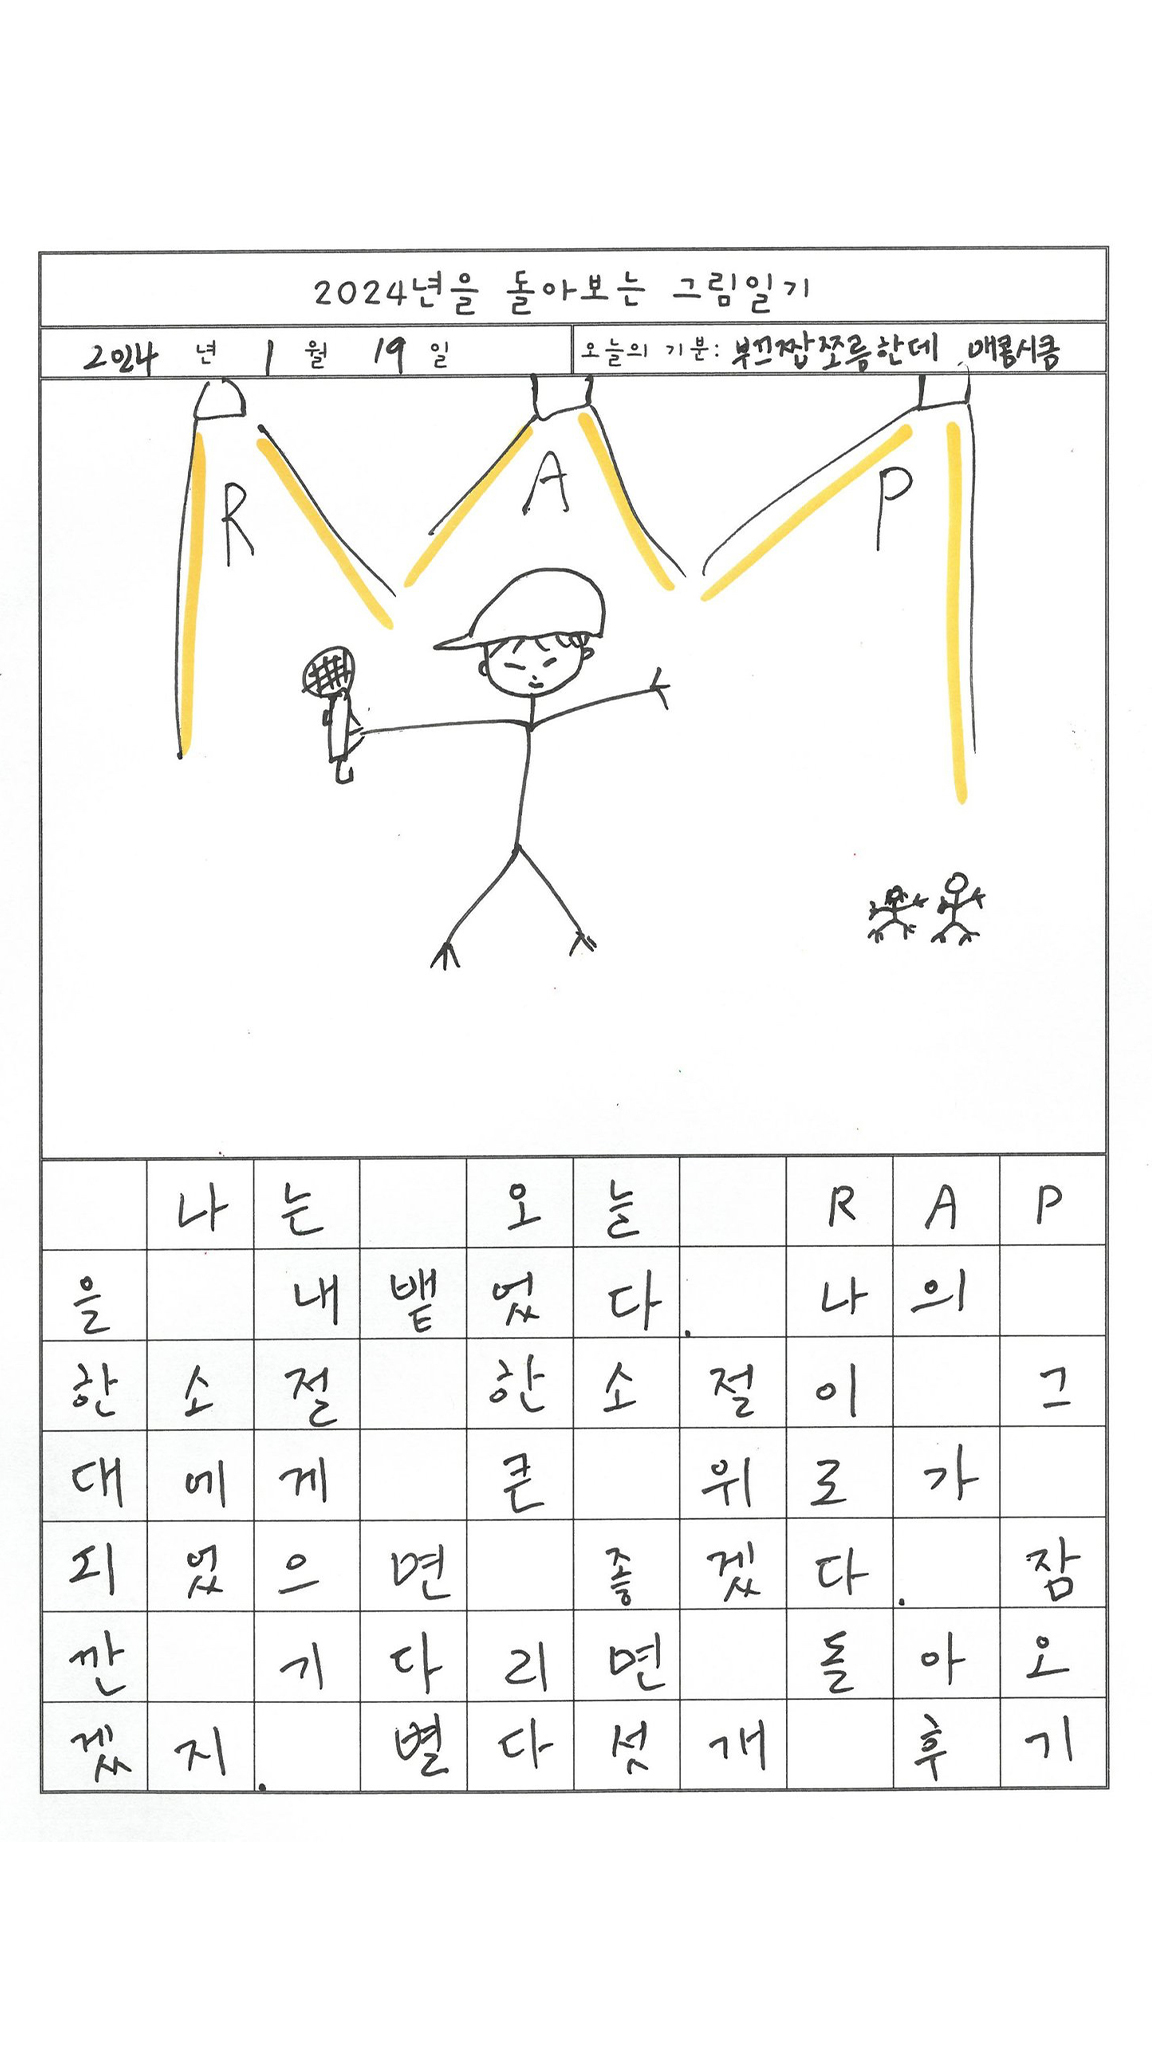 2024년을 돌아보는 그림일기
2024 년 1 월 19 일 오늘의 기분: 짭쪼름한데 매콤시큼
R A P
나는 오늘 RAP
을 내뱉었다. 나의
한소절 한소절이 그
대에게 큰 위로가
되었으면 좋겠다. 잠
깐 기다리면 돌아오
겠지. 별다섯개 후기